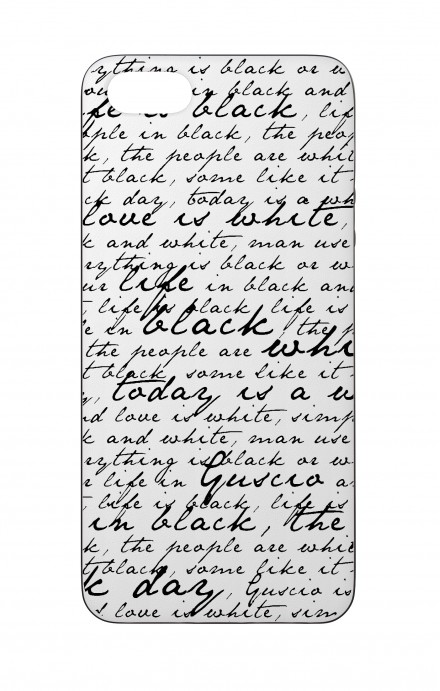 rything is black or w
in black and
fe is black, lif
ople in black, the peop
k, the people are whit
t black, some like it
ck day, today is a wh
love is white,
k and white, man use
rything is black or w
ur life in black and
t life is black, life is
e in black, the p
the people are whi
t black, some like it
, today is a w
nd love is white, simp
k and white, man use
rything is black or w
r life in Guscio a
t life is black, life is
in black, the
k, the people are whit
t black, some like it
k day, Guscio is
s love is white, sim